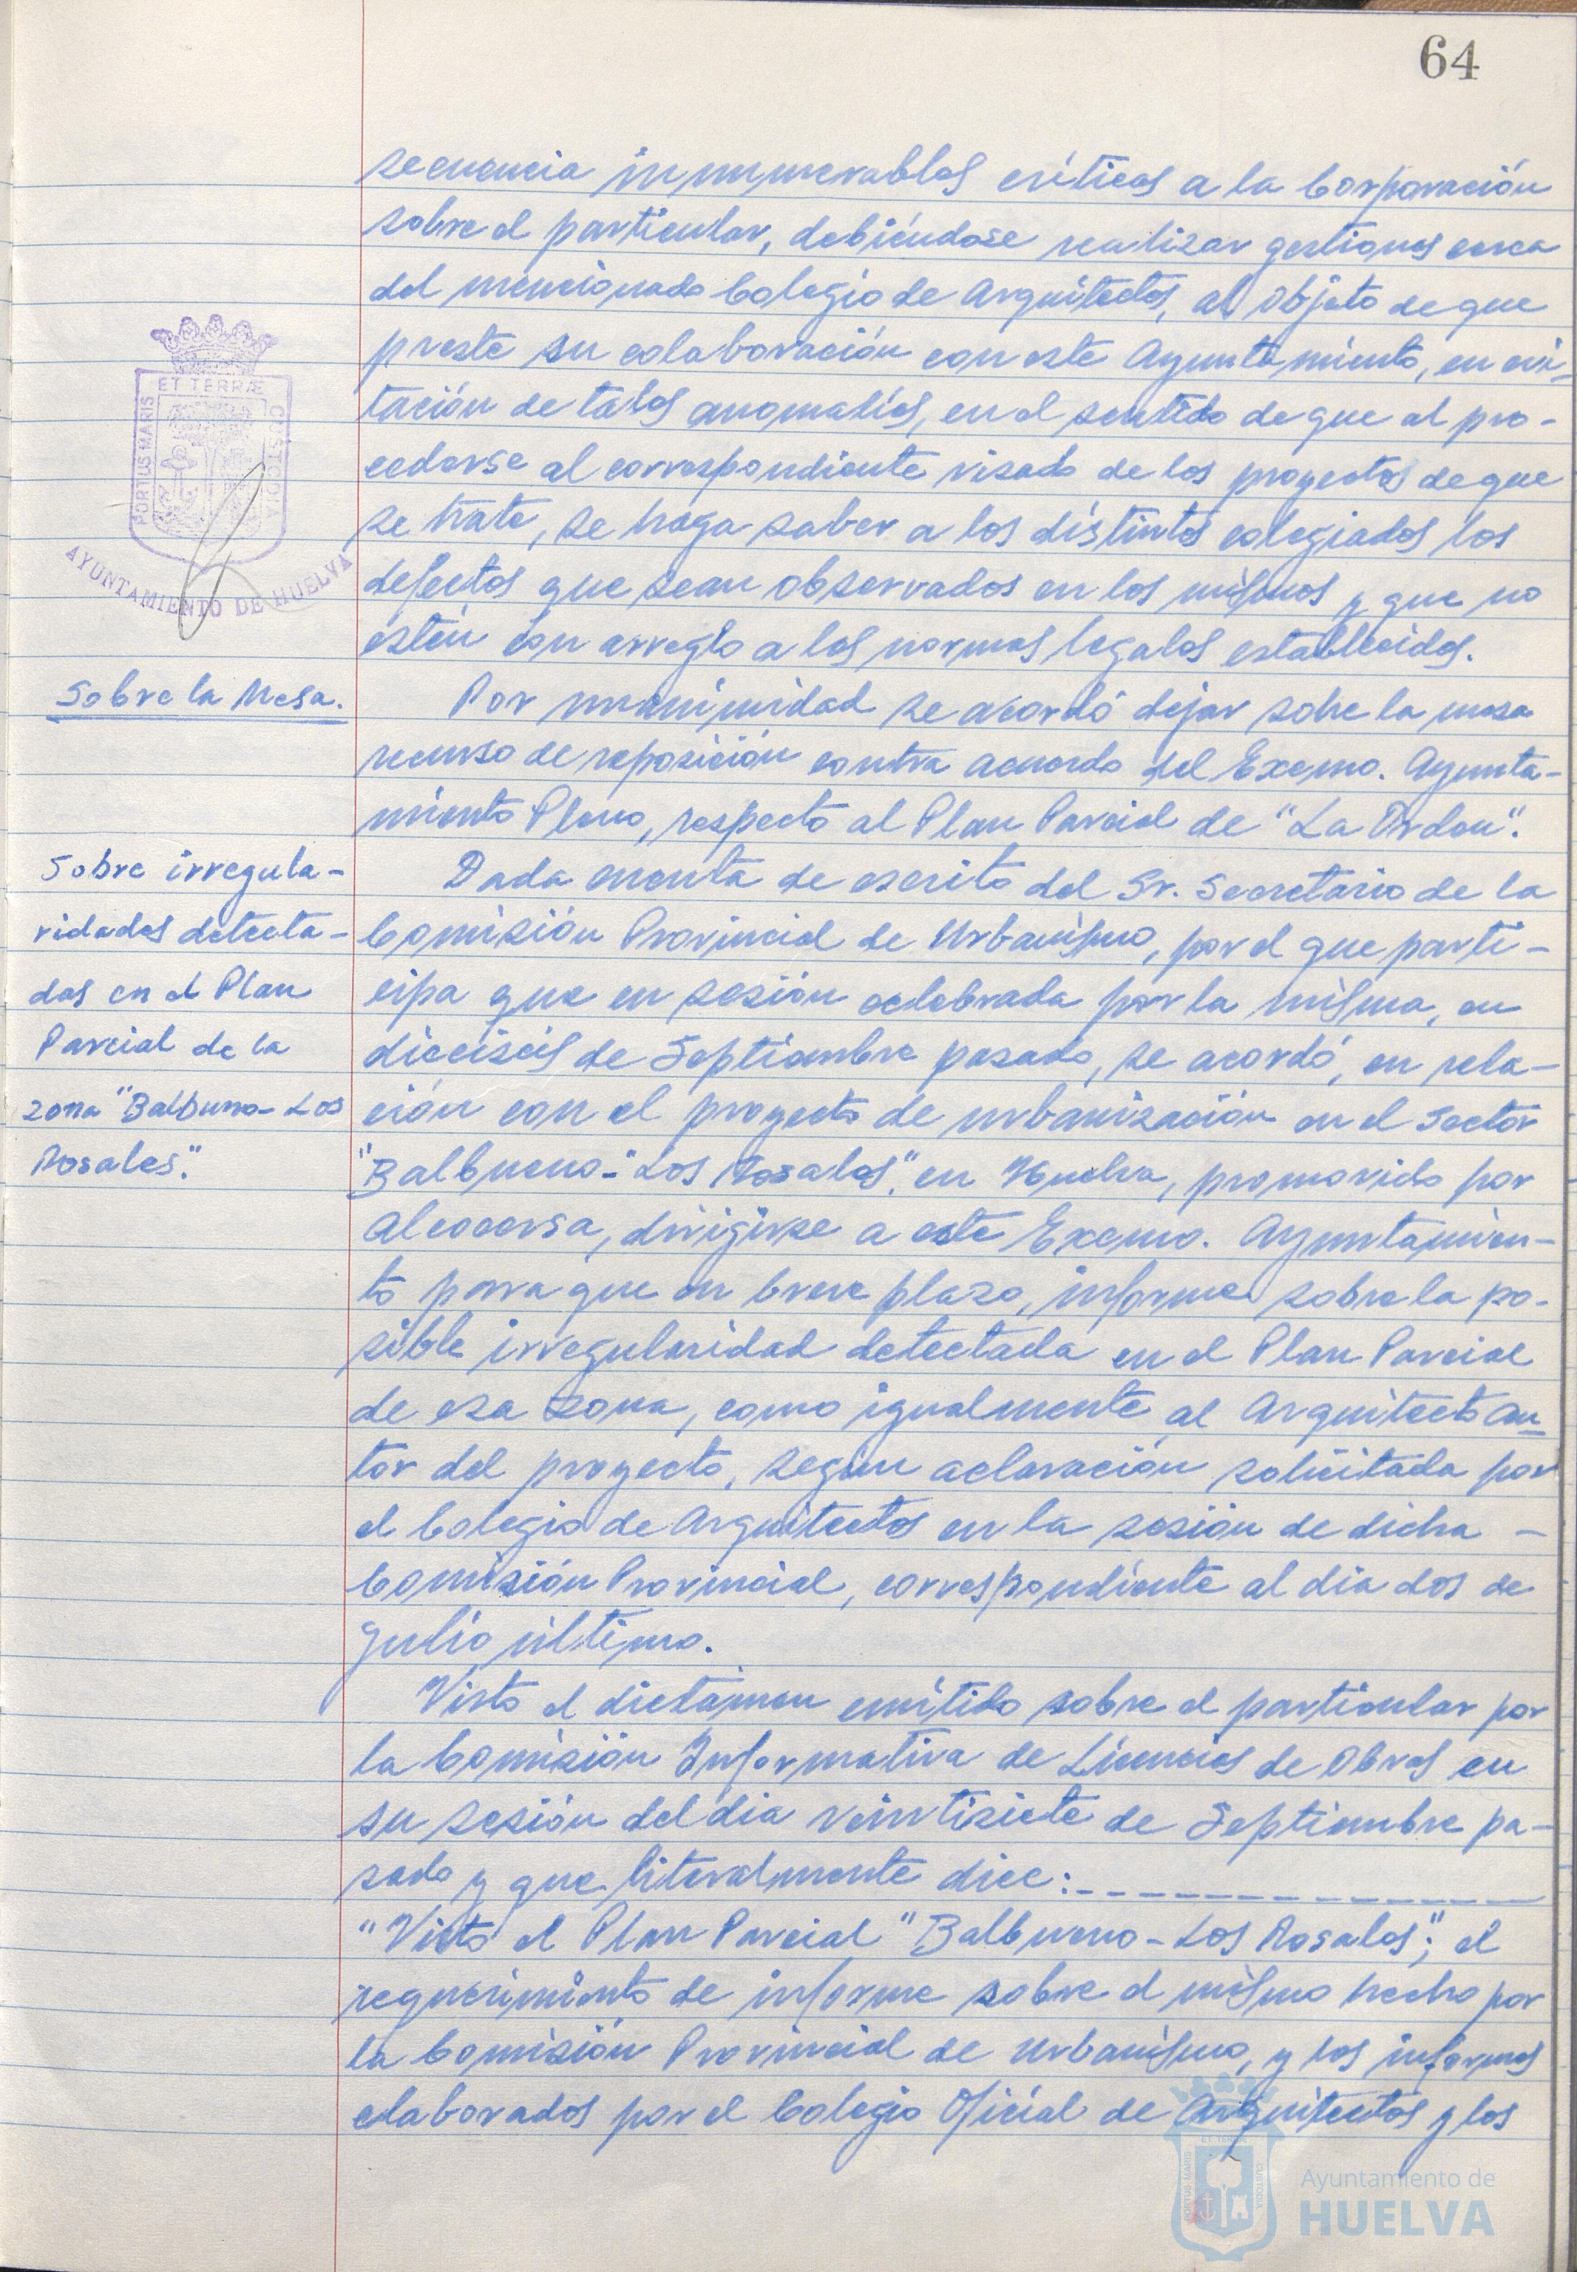 64
secuencia innumerables críticas a la Corporación
sobre el particular, debiéndose realizar gestiones cerca
del mencionado Colegio de Arquitectos, al objeto de que
preste su colaboración con este Ayuntamiento, en evi-
tación de tales anomalías, en el sentido de que al pro-
cederse al correspondiente visado de los proyectos de que
se trate, se haga saber a los distintos colegiados los
defectos que sean observados en los mismos y que no
estén con arreglo a las normas legales establecidas.
ET TERRÆ
PORTUS MARIS
CUSTODIA
AYUNTAMIENTO DE HUELVA
Sobre la Mesa.
Por unanimidad se acordó dejar sobre la mesa
recurso de reposición contra acuerdo del Excmo. Ayunta-
miento Pleno, respecto al Plan Parcial de "La Orden".
Sobre irregula-
ridades detecta-
das en el Plan
Parcial de la
zona "Balbueno-Los
Rosales".
Dada cuenta de escrito del Sr. Secretario de la
Comisión Provincial de Urbanismo, por el que parti-
cipa que en sesión celebrada por la misma, en
dieciséis de Septiembre pasado, se acordó, en rela-
ción con el proyecto de urbanización en el Sector
"Balbueno-"Los Rosales", en Huelva, promovido por
Alcocersa, dirigirse a este Excmo. Ayuntamien-
to para que en breve plazo, informe sobre la po-
sible irregularidad detectada en el Plan Parcial
de esa zona, como igualmente al Arquitecto au-
tor del proyecto, según aclaración solicitada por
el Colegio de Arquitectos en la sesión de dicha -
Comisión Provincial, correspondiente al dia dos de
Julio último.
Visto el dictámen emitido sobre el particular por
la Comisión Informativa de Licencias de Obras en
su sesión del dia veintisiete de Septiembre pa-
sado y que literalmente dice:- - - - - - - - - - - -
"Visto el Plan Parcial "Balbueno-Los Rosales"; el
requerimiento de informe sobre el mismo hecho por
la Comisión Provincial de Urbanismo, y los informes
elaborados por el Colegio Oficial de Arquitectos y los
Ayuntamiento de
HUELVA